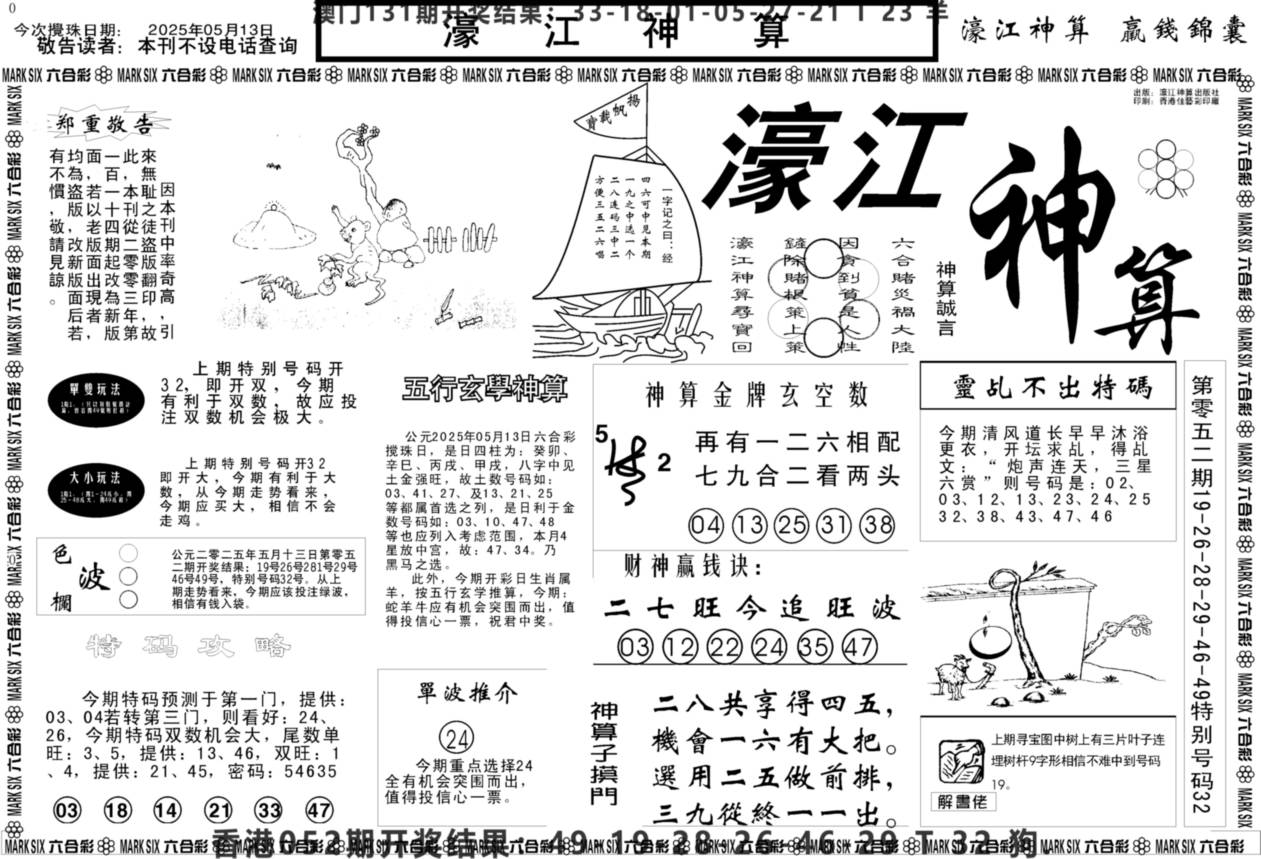 0
澳门131期开奖结果：33-18-01-05-27-21 T 23 羊
今次攪珠日期： 2025年05月13日
敬告读者：本刊不设电话查询
濠 江 神 算
濠江神算 贏錢錦囊
MARK SIX 六合彩 MARK SIX 六合彩 MARK SIX 六合彩 MARK SIX 六合彩 MARK SIX 六合彩 MARK SIX 六合彩 MARK SIX 六合彩 MARK SIX 六合彩 MARK SIX 六合彩 MARK SIX 六合彩 MARK SIX 六合彩
出版：濠江神算出版社
印刷：香港佳藝彩印廠
郑重敬告
因本刊中率奇高，引
來無耻之徒盜版翻印故
此，本刊從二零零三年第
一百一十四期起改為新版，
面，若以老版面出現者，
均為盜版，改新版面后若
有不慣，敬請見諒。
揚帆載時
一字记之曰：经
四六可中见本期
一九之中选一个
二八连码三中二
方便三五二六唱
濠江
神算
神算誠言
六合賭災禍大陸
因貪到貧是人性
鏟除賭根策上策
濠江神算尋寶回
單雙玩法
上期特别号码开
32，即开双，今期
有利于双数，故应投
注双数机会极大。
大小玩法
上期特别号码开32
即开大，今期有利于大
数，从今期走势看来，
今期应买大，相信不会
走鸡。
色波欄
公元二零二五年五月十三日第零五
二期开奖结果：19号26号281号29号
46号49号，特别号码32号。从上
期走势看来，今期应该投注绿波，
相信有钱入袋。
特码攻略
今期特码预测于第一门，提供：
03、04若转第三门，则看好：24、
26，今期特码双数机会大，尾数单
旺：3、5，提供：13、46，双旺：1
、4，提供：21、45，密码：54635
03 18 14 21 33 47
五行玄學神算
公元2025年05月13日六合彩
搅珠日，是日四柱为：癸卯、
辛巳、丙戌、甲戌，八字中见
土金强旺，故土数号码如：
03、41、27、及13、21、25
等都属首选之列，是日利于金
数号码如：03、10、47、48
等也应列入考虑范围，本月4
星放中宫，故：47、34。乃
黑马之选。
此外，今期开彩日生肖属
羊，按五行玄学推算，今期：
蛇羊牛应有机会突围而出，值
得投信心一票，祝君中奖。
單波推介
24
今期重点选择24
全有机会突围而出，
值得投信心一票。
神算金牌玄空数
5
2
再有一二六相配
七九合二看两头
04 13 25 31 38
财神赢钱诀：
二七旺今追旺波
03 12 22 24 35 47
神算子摸門
二八共享得四五，
機會一六有大把。
選用二五做前排，
三九從終一一出。
靈乩不出特碼
今期清风道长早早沐浴
更衣，开坛求乩，得乩
文：“炮声连天，三星
六赏”则号码是：02、
03、12、13、23、24、25
32、38、43、47、46
上期寻宝图中树上有三片叶子连
埋树杆9字形相信不难中到号码
19。
解書佬
第零五二期19-26-28-29-46-49特别号码32
MARK SIX 六合彩 MARK SIX 六合彩 MARK SIX 六合彩 MARK SIX 六合彩 MARK SIX 六合彩 MARK SIX 六合彩 MARK SIX 六合彩 MARK SIX 六合彩 MARK SIX 六合彩 MARK SIX 六合彩 MARK SIX 六合彩
香港052期开奖结果：49-19-28-26-46-29 T 32 狗